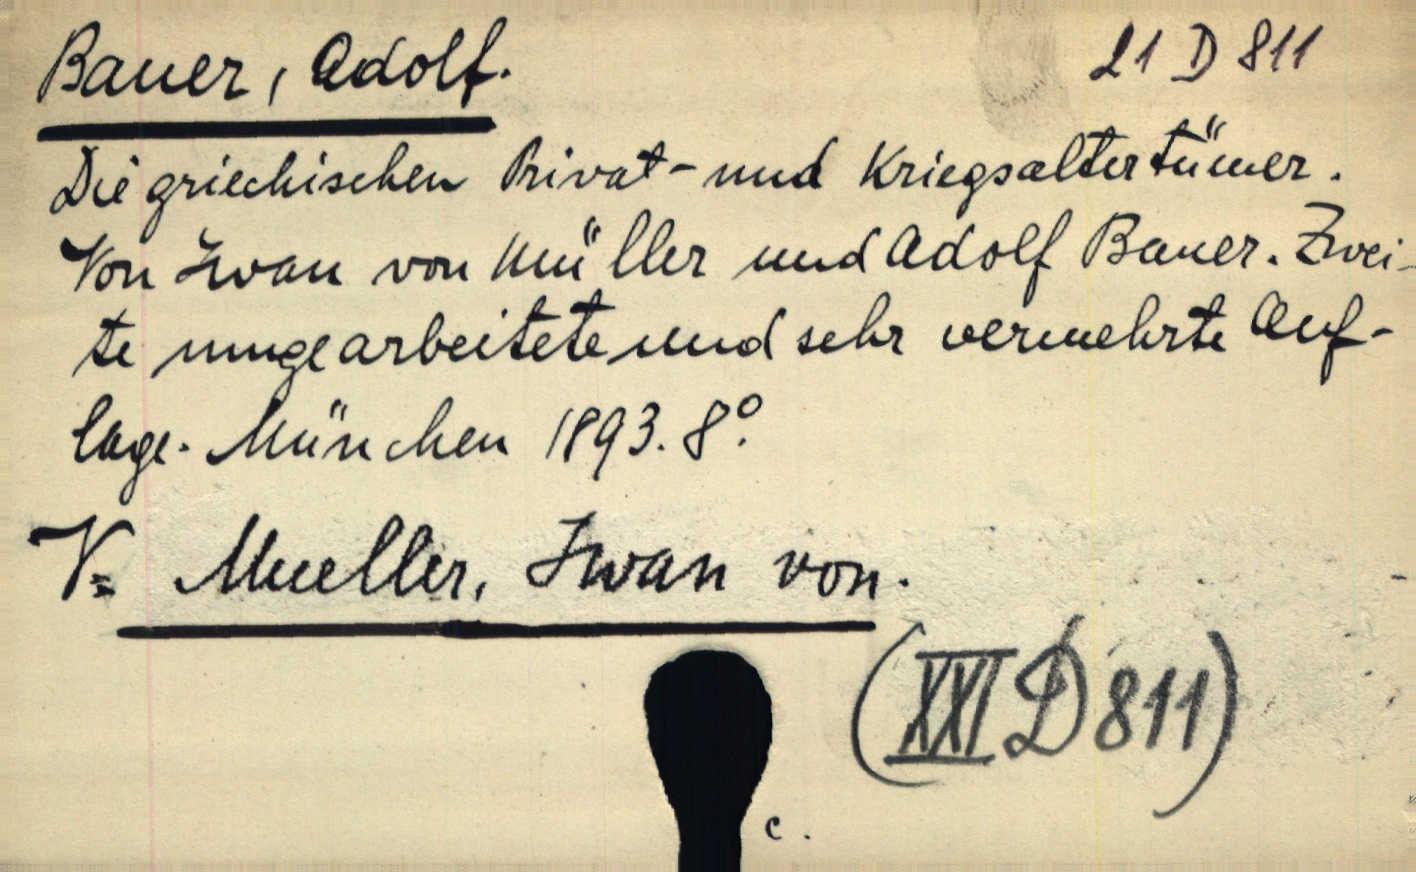 Bauer, Adolf. 21 D 811
Die griechischen Privat- und Kriegsaltertümer.
Von Iwan von Müller und Adolf Bauer. Zwei-
te umgearbeitete und sehr vermehrte Auf-
lage. München 1893. 8º.
V= Mueller, Iwan von.
(XXI D 811)
c.